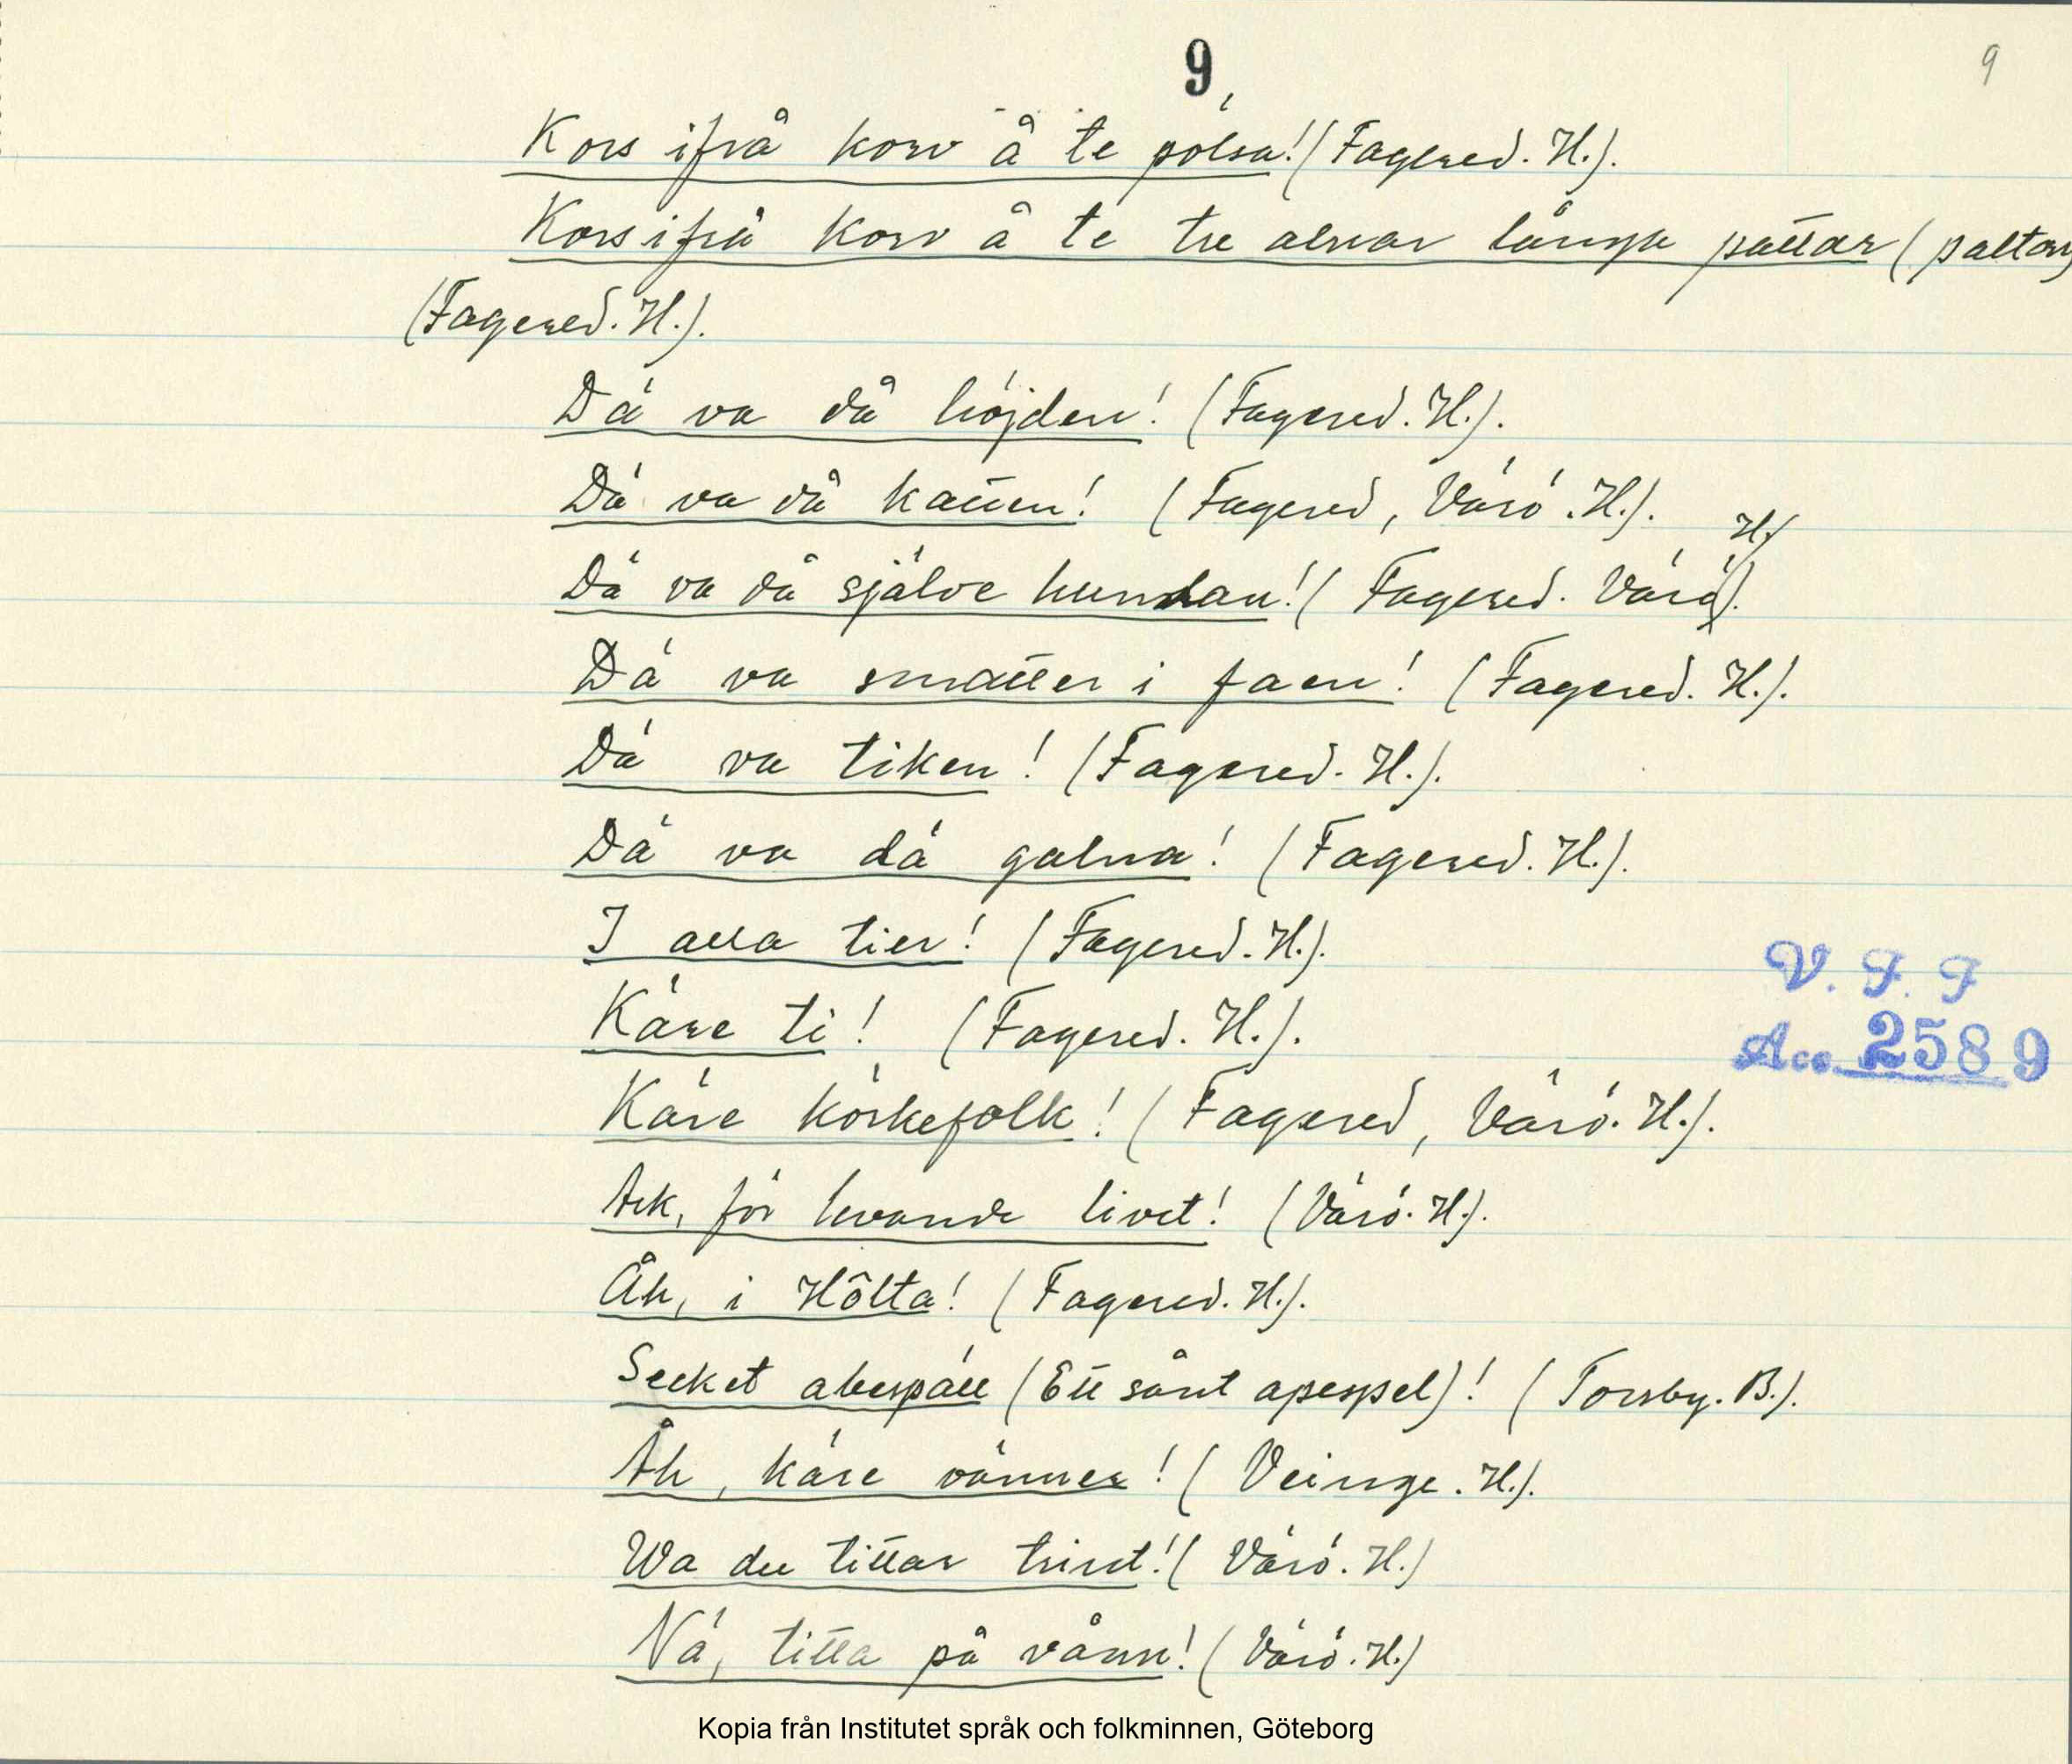 9
9
Kors ifrå korv å te pölsa! (Fagered. H.).
Kors ifrå korv å te tre alnar långa pattar (paltar)
(Fagered. H.).
Dä va då höjden! (Fagered. H.).
Dä va då katten! (Fagered, Värö. H.).
Dä va då själve hundan! (Fagered. Värö. H.).
Dä va smatter i faen! (Fagered. H.).
Dä va tiken! (Fagered. H.).
Dä va dä galna! (Fagered. H.).
I alla tier! (Fagered. H.).
Käre ti! (Fagered. H.).
Käre körkefolk! (Fagered, Värö. H.).
Ack, för levande livet! (Värö. H.).
Åh, i Hôlta! (Fagered. H.).
Secket abespäll (Ett sånt apespel)! (Torsby. B.).
Åh, käre vänner! (Veinge. H.).
Wa du tittar trint! (Värö. H.)
Nä, titta på vånn! (Värö. H.)
V. F. F
Acc. 2589
Kopia från Institutet språk och folkminnen, Göteborg